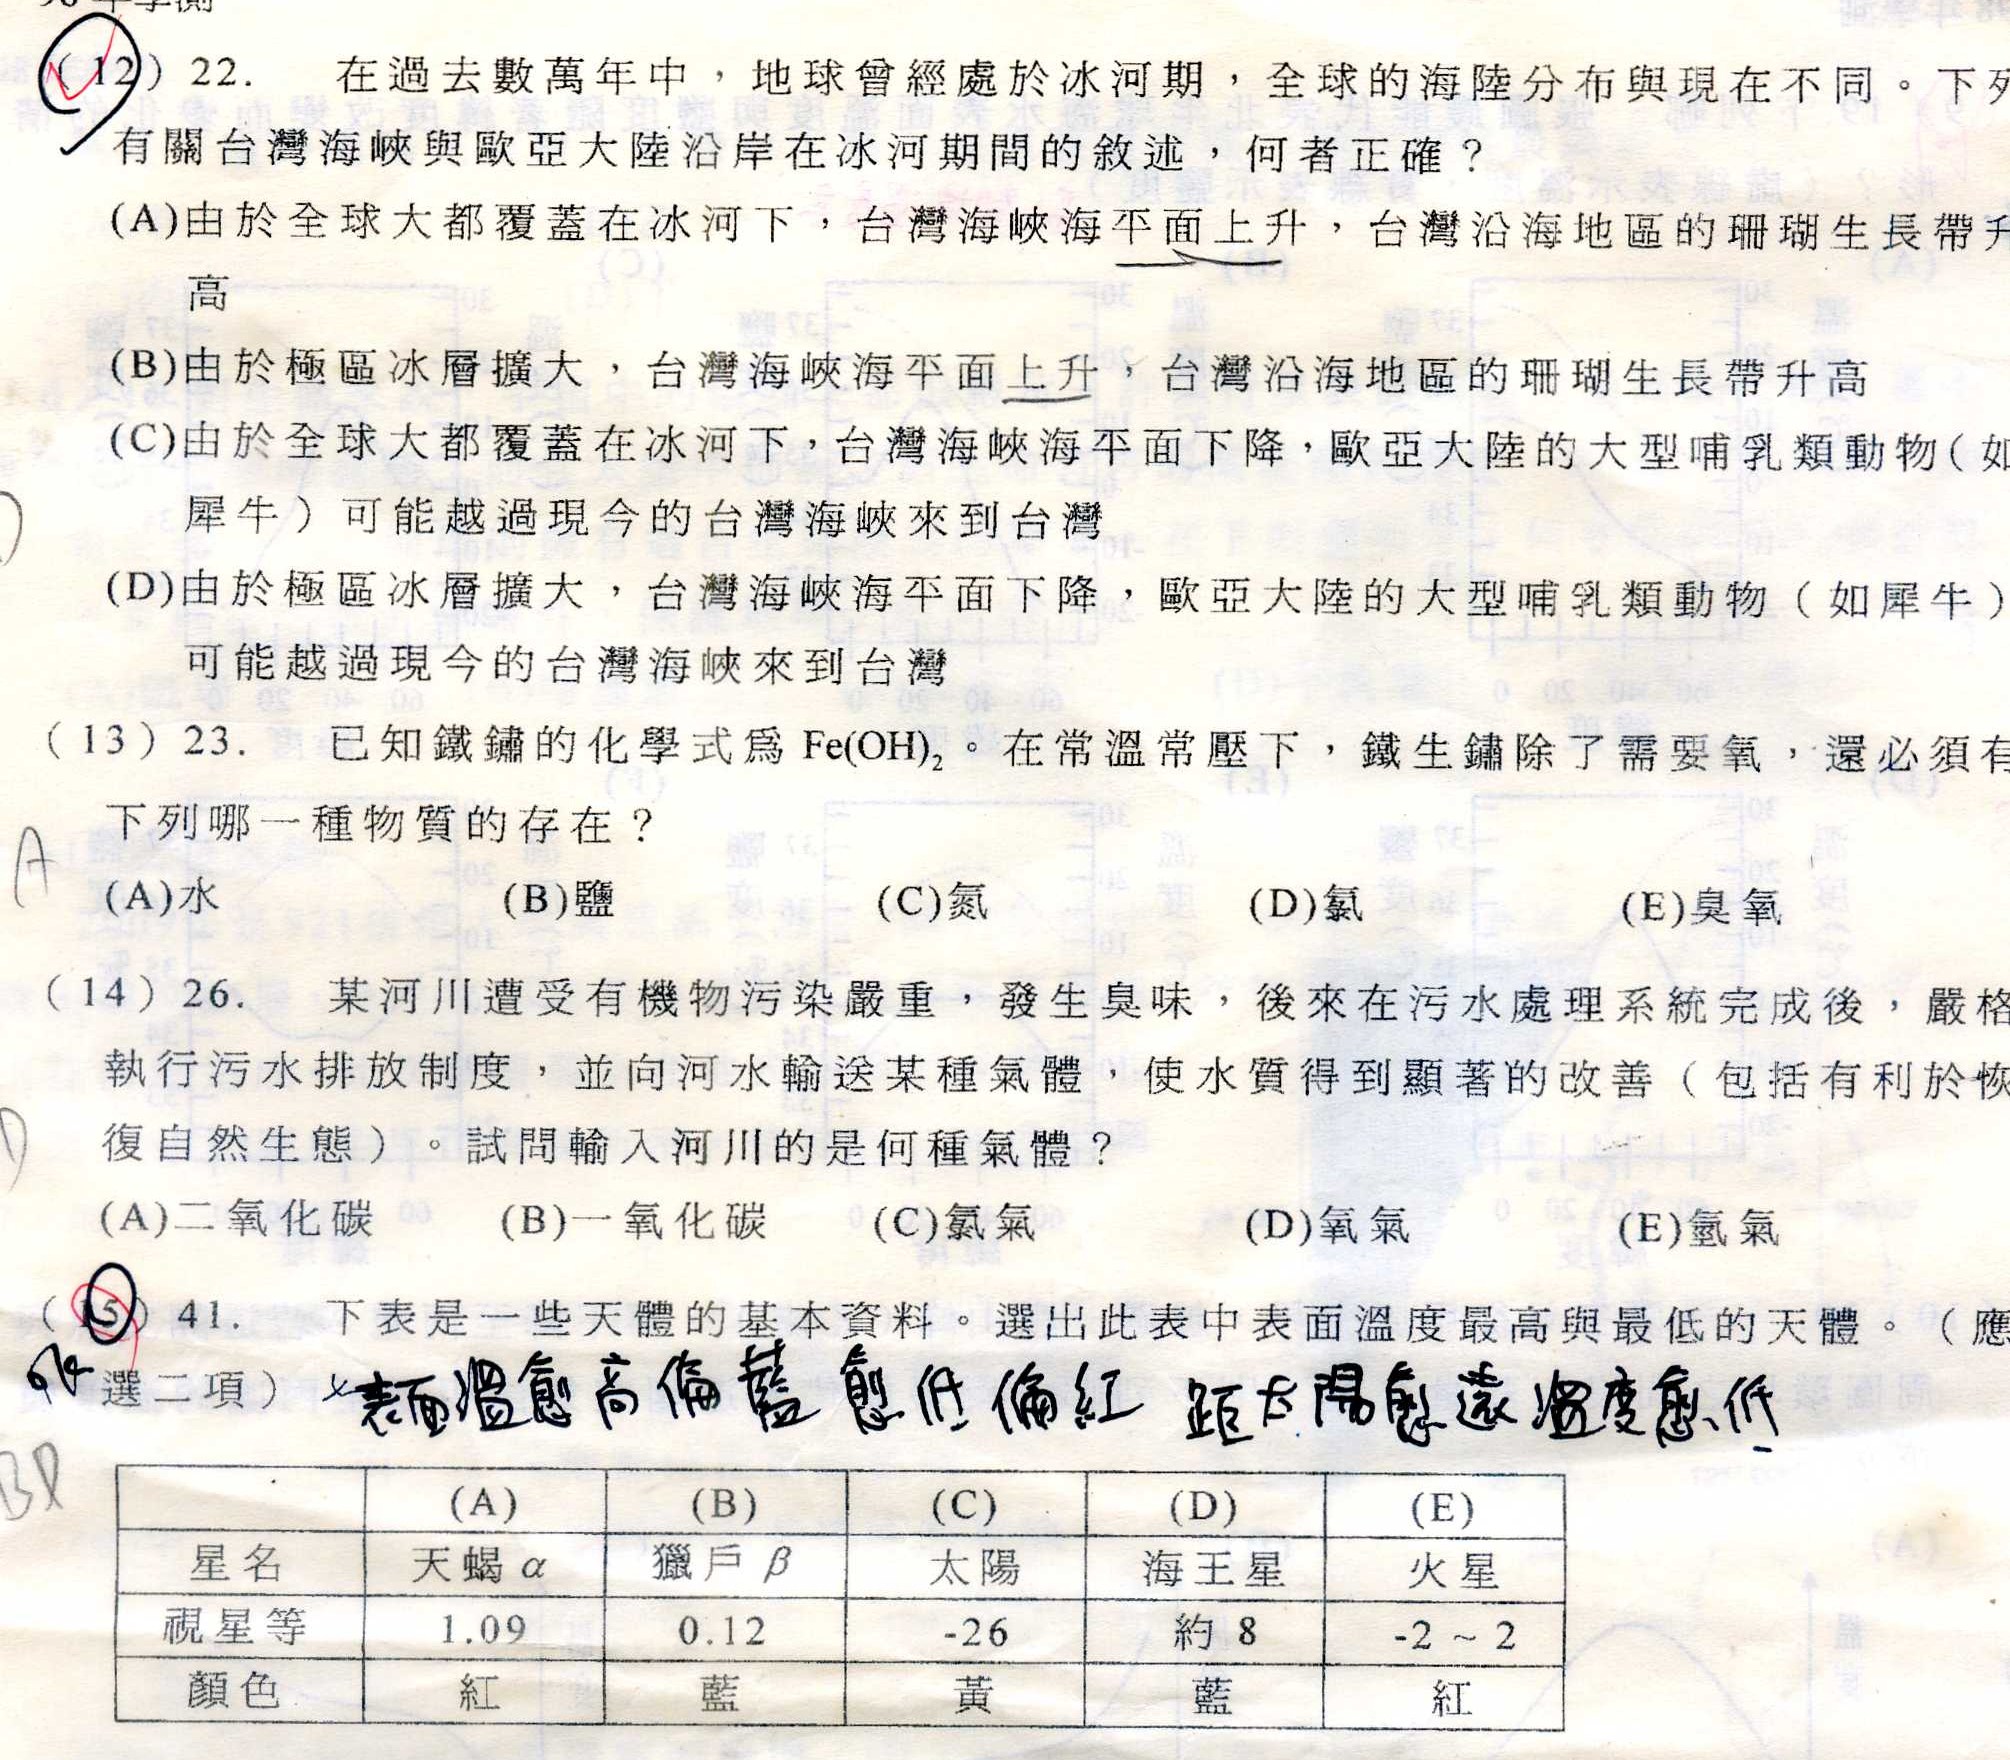 (12) 22. 在過去數萬年中，地球曾經處於冰河期，全球的海陸分布與現在不同。下列
有關台灣海峽與歐亞大陸沿岸在冰河期間的敘述，何者正確？
(A)由於全球大都覆蓋在冰河下，台灣海峽海平面上升，台灣沿海地區的珊瑚生長帶升
高
(B)由於極區冰層擴大，台灣海峽海平面上升，台灣沿海地區的珊瑚生長帶升高
(C)由於全球大都覆蓋在冰河下，台灣海峽海平面下降，歐亞大陸的大型哺乳類動物(如
犀牛）可能越過現今的台灣海峽來到台灣
(D)由於極區冰層擴大，台灣海峽海平面下降，歐亞大陸的大型哺乳類動物（如犀牛）
可能越過現今的台灣海峽來到台灣
(13) 23. 已知鐵鏽的化學式為 Fe(OH)₂。在常溫常壓下，鐵生鏽除了需要氧，還必須有
下列哪一種物質的存在？
A
(A)水 (B)鹽 (C)氮 (D)氯 (E)臭氧
(14) 26. 某河川遭受有機物污染嚴重，發生臭味，後來在污水處理系統完成後，嚴格
執行污水排放制度，並向河水輸送某種氣體，使水質得到顯著的改善（包括有利於恢
復自然生態）。試問輸入河川的是何種氣體？
D
(A)二氧化碳 (B)一氧化碳 (C)氯氣 (D)氧氣 (E)氫氣
(15) 41. 下表是一些天體的基本資料。選出此表中表面溫度最高與最低的天體。（應
選二項）
表面溫愈高偏藍 愈低偏紅 距太陽愈遠溫度愈低
(A) (B) (C) (D) (E)
星名 天蝎α 獵戶β 太陽 海王星 火星
視星等 1.09 0.12 -26 約 8 -2 ~ 2
顏色 紅 藍 黃 藍 紅